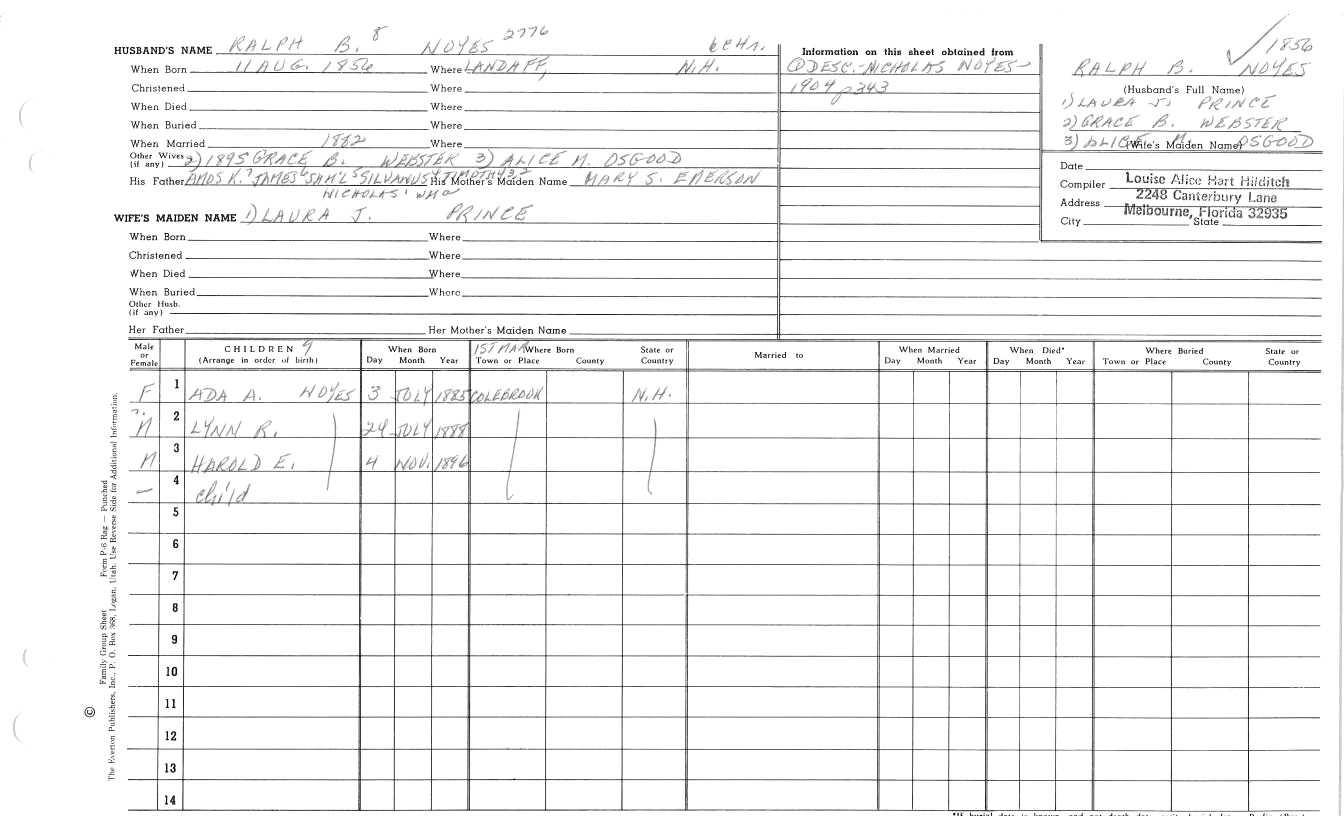 HUSBAND'S NAME RALPH B. 8 NOYES 2776 6 CHn.
When Born 11 AUG. 1856 Where LANDAFF, N.H.
Christened Where
When Died Where
When Buried Where
When Married 1882 Where
Other Wives (if any) 2) 1895 GRACE B. WEBSTER 3) ALICE M. OSGOOD
His Father AMOS K.7 JAMES6 SAM'L5 SILVANUS4 TIMOTHY3,2 His Mother's Maiden Name MARY S. EMERSON
NICHOLAS1 Wm
WIFE'S MAIDEN NAME 1) LAURA J. PRINCE
When Born Where
Christened Where
When Died Where
When Buried Where
Other Husb. (if any)
Her Father Her Mother's Maiden Name
Information on this sheet obtained from
① DESC.-NICHOLAS NOYES-
1904 p343
✓ 1856
RALPH B. NOYES
(Husband's Full Name)
1) LAURA J. PRINCE
2) GRACE B. WEBSTER
3) ALICE M. OSGOOD
(Wife's Maiden Name)
Date
Compiler Louise Alice Hart Hilditch
Address 2248 Canterbury Lane
Melbourne, Florida 32935
City State
Male or Female
CHILDREN 9
(Arrange in order of birth)
When Born
Day Month Year
1ST MAR Where Born
Town or Place County
State or Country
Married to
When Married
Day Month Year
When Died*
Day Month Year
Where Buried
Town or Place County
State or Country
F 1 ADA A. NOYES 3 JULY 1885 COLEBROOK N.H.
?. M 2 LYNN R. 24 JULY 1888
M 3 HAROLD E. 4 NOV. 1896
— 4 child
5
6
7
8
9
10
11
12
13
14
© Family Group Sheet Form P-6 Rag — Punched
The Everton Publishers, Inc., P. O. Box 368, Logan, Utah. Use Reverse Side for Additional Information.